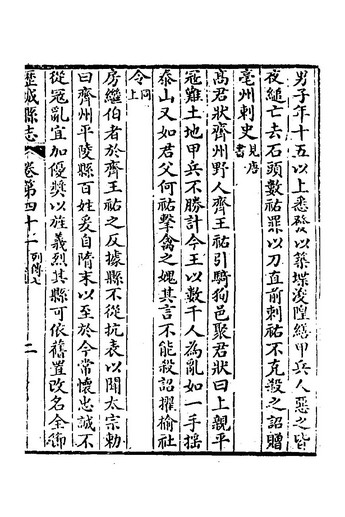 男子年十五以上悉發以築堞浚隍繕甲兵人惡之皆
夜縋亡去石頭數祐罪以刀直前刺祐不克殺之詔贈
亳州刺史見唐書
高君狀齊州野人齊王祐引騎狗邑聚君狀曰上親平
寇難土地甲兵不勝計今王以數千人為亂如一手搖
泰山又如君父何祐擊禽之媿其言不能殺詔擢榆社
令同上
房繼伯者於齊王祐之反據縣不從抗表以聞太宗勅
曰齊州平陵縣百姓爰自隋末以至於今常懷忠誠不
從冦亂宜加優奬以旌義烈其縣可依舊置改名全節
歷城縣志 卷第四十二 列傳 二